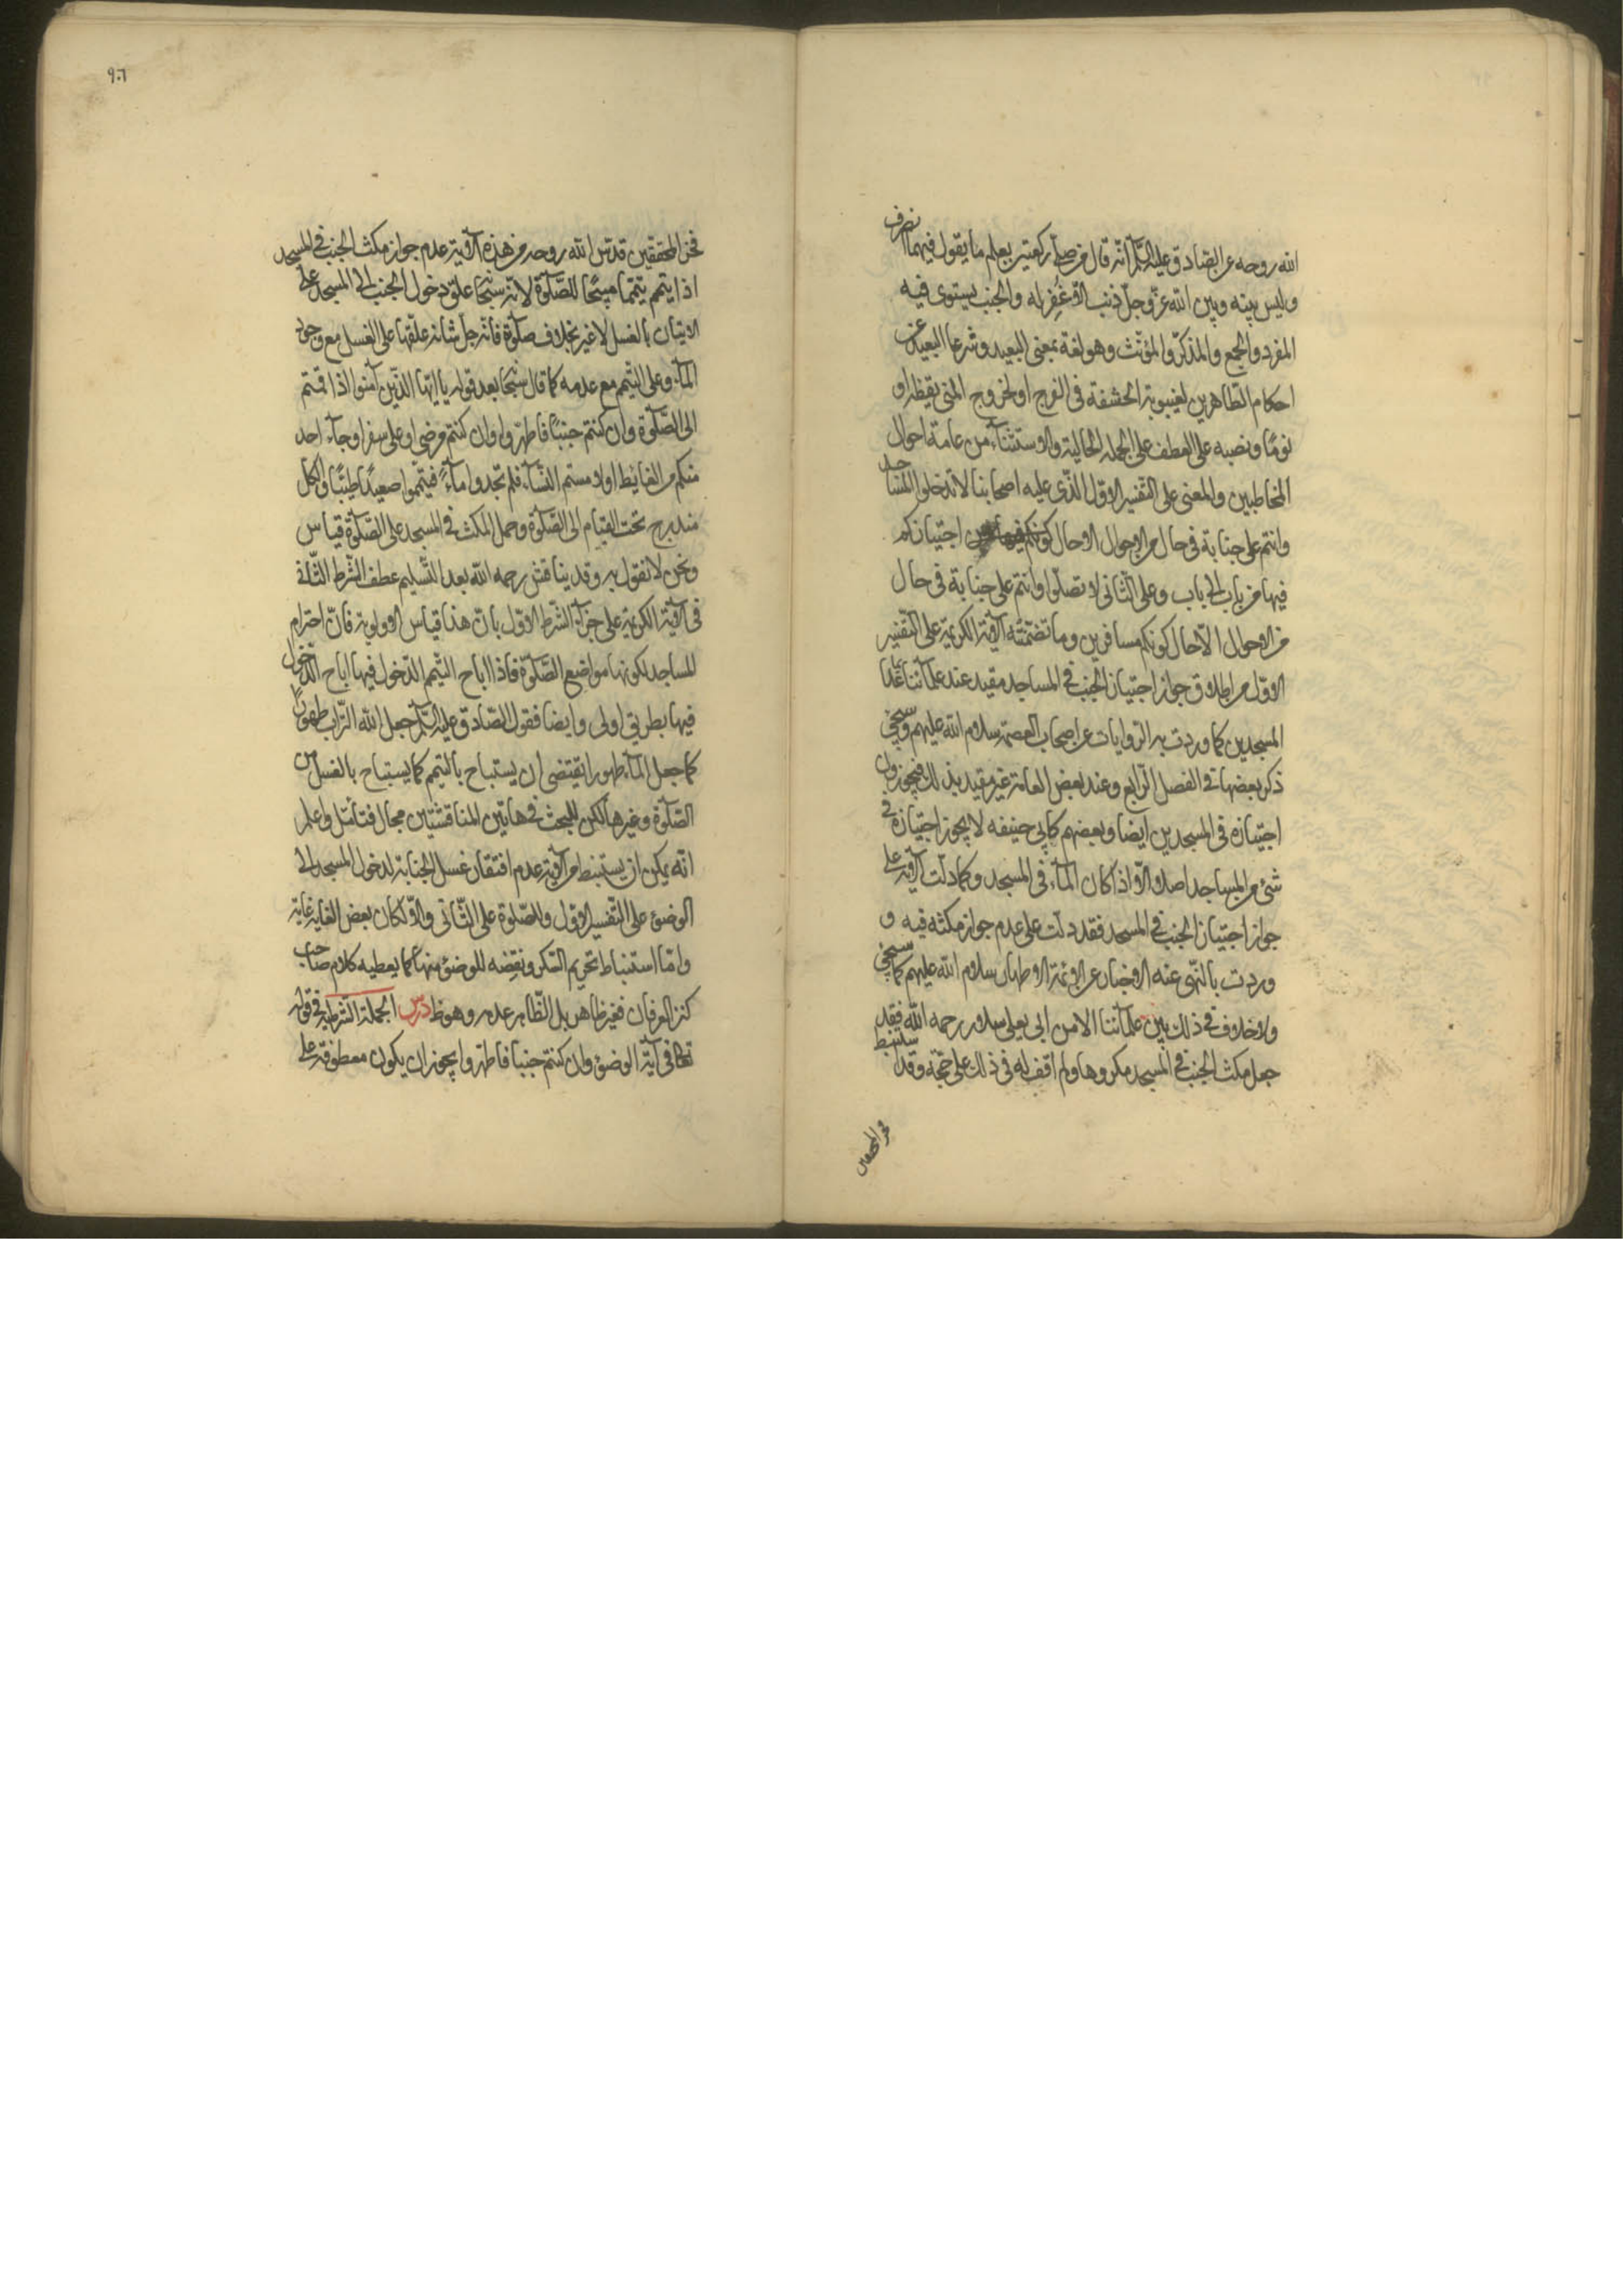 الله روحه عن الصادق عليه السلم انه قال من صلى ركعتين يعلم ما يقول فيهما انصرف
وليس بينه وبين الله عز وجل ذنب الا غفر له والجنب يستوى فيه
المفرد والجمع والمذكر والمؤنث وهو لغة بمعنى البعيد وشرعا البعيد عن
احكام الطاهرين لغيبوبة الحشفة فى الفرج او لخروج المنى يقظة او
نوما ونصبه على العطف على الجملة الحالية والاستثناء من عامة احوال
المخاطبين والمعنى على التفسير الاول الذى عليه اصحابنا لا تدخلوا المساجد
وانتم على جنابة فى حال من الاحوال الا حال كونكم اجتيازكم
فيها من باب الى باب وعلى الثانى لا تصلوا وانتم على جنابة فى حال
من الاحوال الا حال كونكم مسافرين وما تضمنته الآية الكريمة على التفسير
الاول من اطلاق جواز اجتياز الجنب فى المساجد مقيد عند علمائنا بما عدا
المسجدين كما وردت به الروايات عن اصحاب العصمة سلام الله عليهم وسيجئ
ذكر بعضها فى الفصل الرابع وعند بعض العامة غير مقيد بذلك فيجوزون
اجتيازه فى المسجدين ايضا وبعضهم كابى حنيفه لا يجوز اجتيازه فى
شئ من المساجد اصلا الا اذا كان المآء فى المسجد وكما دلت الآية على
جواز اجتياز الجنب فى المسجد فقد دلت على عدم جواز مكثه فيه و
وردت بالنهى عنه الاخبار عن الائمة الاطهار سلام الله عليهم كما سيجئ
ولا خلاف فى ذلك بين علمآئنا الا من ابى يعلى سلار رحمه الله فقد
جعل مكث الجنب فى المسجد مكروها ولم اقف له فى ذلك على حجة وقد استنبط
فخر المحققين
٩٠٦
فخر المحققين قدس الله روحه من هذه الآية عدم جواز مكث الجنب فى المسجد
اذا تيمم تيمما مبيحا للصلوة لانه سبحا علق دخول الجنب الى المسجد على
الاتيان بالغسل لا غير بخلاف صلوة فانه جل شانه علقها على الغسل مع وجود
المآء وعلى التيمم مع عدمه كما قال سبحا بعد قوله يا ايها الذين آمنوا اذا قمتم
الى الصلوة وان كنتم جنبا فاطهروا وان كنتم مرضى او على سفر او جآء احد
منكم من الغايط او لامستم النسآء فلم تجدوا مآء فتيمموا صعيدا طيبا والكل
مندرج تحت القيام الى الصلوة وحمل المكث فى المسجد على الصلوة قياس
ونحن لا نقول به وقد يناقش رحمه الله بعد التسليم عطف الشرط الثانى
فى الآية الكريمة على جزآء الشرط الاول بان هذا قياس الاولوية فان احترام
المساجد لكونها مواضع الصلوة فاذا اباح التيمم الدخول فيها اباح الدخول
فيها بطريق اولى وايضا فقول الصادق عليه السلم جعل الله التراب طهورا
كما جعل المآء طهورا يقتضى ان يستباح بالتيمم كما يستباح بالغسل من
الصلوة وغيرها لكن للبحث فى هاتين المناقشتين مجال فتامل واعلم
انه يمكن ان يستنبط من الآية عدم افتقار غسل الجنابة لدخول المسجد الى
الوضوء على التفسير الاول وللصلوة على الثانى والا لكان بعض الغايه غاية
واما استنباط تحريم السكر ونقضه للوضوء منها كما يعطيه كلام صاحب
كنز العرفان فغير ظاهر بل الظاهر عدمه وهو ظ درس الجملة الشرطية فى قوله
تعا فى آية الوضوء وان كنتم جنبا فاطهروا يجوز ان يكون معطوفة على